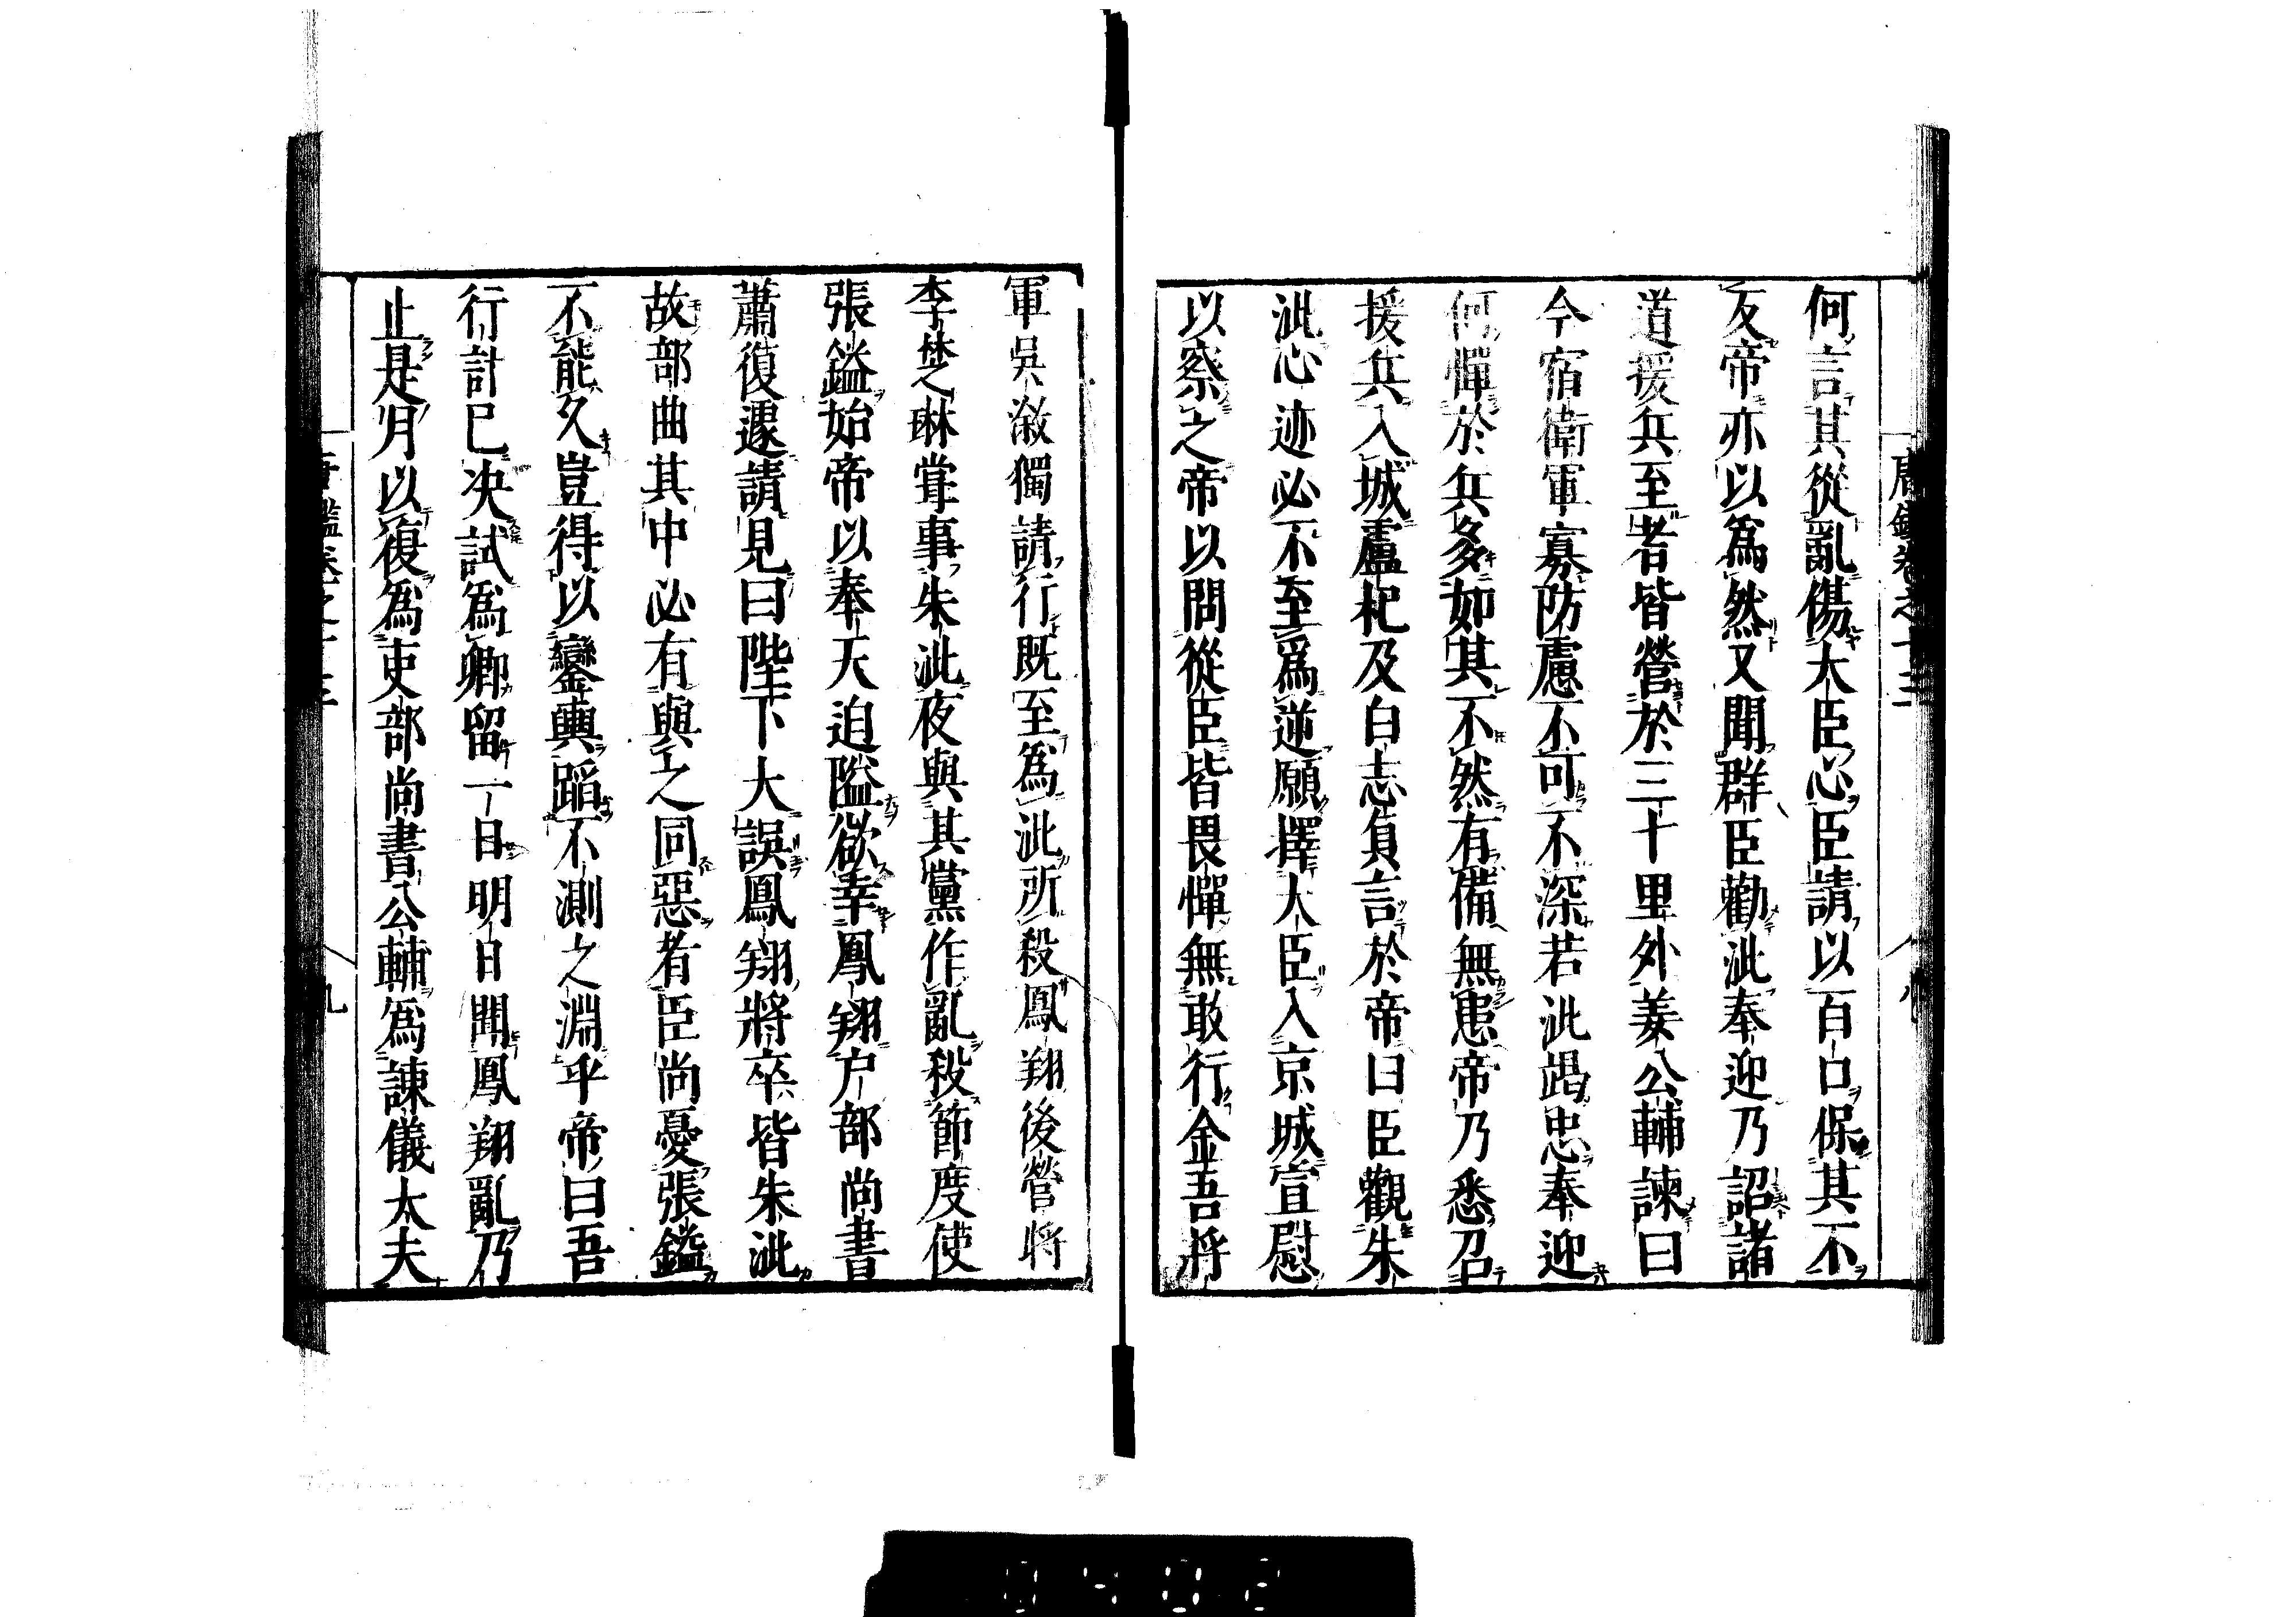 何言其從亂傷大臣心臣請以百口保其不
反帝亦以爲然又聞群臣勸泚奉迎乃詔諸
道援兵至者皆營於三十里外姜公輔諫曰
今宿衛軍寡防慮不可不深若泚竭忠奉迎
何憚於兵多如其不然有備無患帝乃悉召
援兵入城盧杞及白志貞言於帝曰臣觀朱
泚心迹必不至爲逆願擇大臣入京城宣慰
以察之帝以問從臣皆畏憚無敢行金吾將
軍吳漵獨請行既至爲泚所殺鳳翔後營將
李楚琳嘗事朱泚夜與其黨作亂殺節度使
張鎰始帝以奉天迫隘欲幸鳳翔户部尚書
蕭復遽請見曰陛下大誤鳳翔將卒皆朱泚
故部曲其中必有與之同惡者臣尚憂張鎰
不能久豈得以鑾輿蹈不測之淵乎帝曰吾
行計已决試爲卿留一日明日聞鳳翔亂乃
止是月以復爲吏部尚書公輔爲諫儀太夫